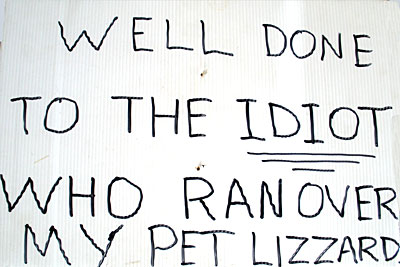 WELL DONE
TO THE IDIOT
WHO RAN OVER
MY PET LIZZARD